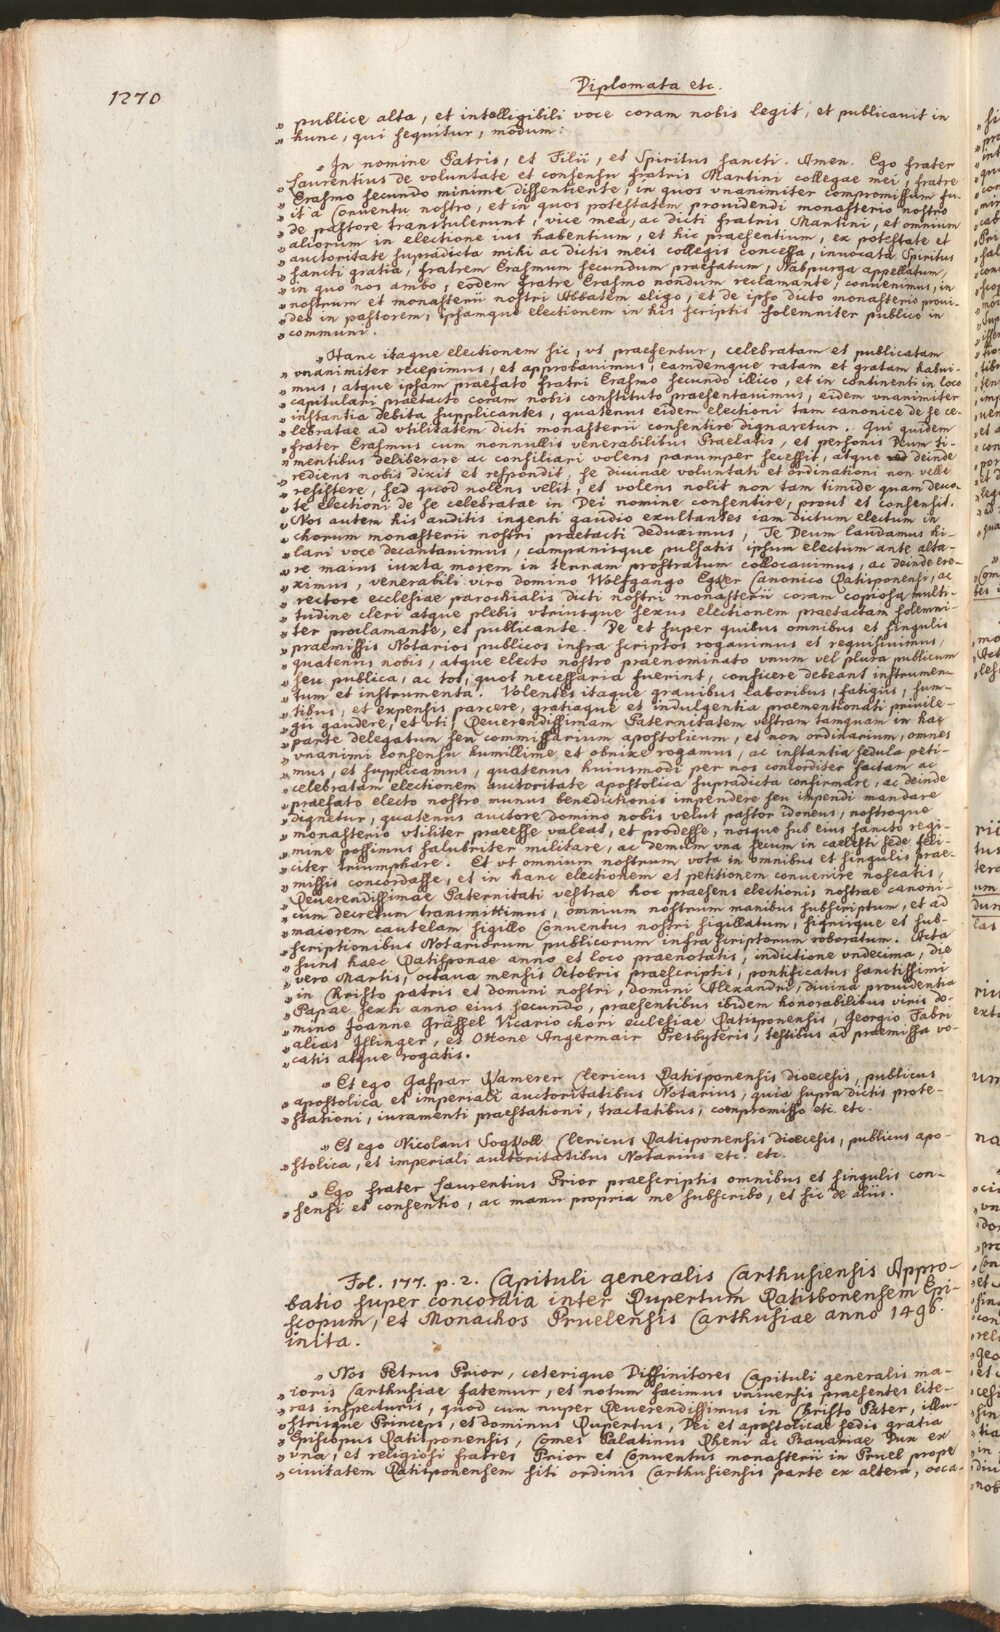 1270
Diplomata etc.
„ publice alta, et intelligibili voce coram nobis legit, et publicauit in
„ hunc, qui sequitur, modum:
„ In nomine Patris, et Filii, et Spiritus sancti. Amen. Ego frater
„ Laurentius de voluntate et consensu fratris Martini collegae mei, fratre
„ Erasmo secundo minime dissentiente, in quos vnanimiter compromissum fu-
„ it a Conuentu nostro, et in quos potestatem prouidendi monasterio nostro
„ de pastore transtulerunt, vice mea, ac dicti fratris Martini, et omnium
„ aliorum in electione ius habentium, et hic praesentium, ex potestate et
„ auctoritate supradicta mihi ac dictis meis collegis concessa, inuocata Spiritus
„ sancti gratia, fratrem Erasmum secundum praefatum, Nabpurga appellatum,
„ in quo nos ambo, eodem fratre Erasmo nondum reclamante, conuenimus, in
„ nostrum et monasterii nostri Abbatem eligo, et de ipso dicto monasterio proui-
„ deo in pastorem, ipsamque electionem in his scriptis solemniter publico in
„ communi.
„ Hanc itaque electionem sic, vt praefertur, celebratam et publicatam
„ vnanimiter recepimus, et approbauimus, eamdemque ratam et gratam habui-
„ mus, atque ipsam praefato fratri Erasmo secundo illico, et in continenti in loco
„ capitulari praetacto coram nobis constituto praesentauimus, eidem vnanimiter
„ instantia debita supplicantes, quatenus eidem electioni tam canonice de se ce-
„ lebratae ad vtilitatem dicti monasterii consentire dignaretur. Qui quidem
„ frater Erasmus cum nonnullis venerabilibus Praelatis, et personis Deum ti-
„ mentibus deliberare ac consiliari volens parumper secessit, atque deinde
„ rediens nobis dixit et respondit, se diuinae voluntati et ordinationi non velle
„ resistere, sed quod nolens velit, et volens nolit non tam timide quam deuo-
„ te electioni de se celebratae in Dei nomine consentire, prout et consensit.
„ Nos autem his auditis ingenti gaudio exultantes iam dictum electum in
„ chorum monasterii nostri praetacti deduximus, Te Deum laudamus hi-
„ lari voce decantauimus, campanisque pulsatis ipsum electum ante alta-
„ re maius iuxta morem in terram prostratum collocauimus, ac deinde ere-
„ ximus, venerabili viro domino Wolfgango Egker Canonico Ratisponensi, ac
„ rectore ecclesiae parochialis dicti nostri monasterii coram copiosa multi-
„ tudine cleri atque plebis vtriusque sexus electionem praetactam solemni-
„ ter proclamante, et publicante. De et super quibus omnibus et singulis
„ praemissis Notarios publicos infra scriptos rogauimus et requisiuimus,
„ quatenus nobis, atque electo nostro praenominato vnum vel plura publicum
„ seu publica, ac tot, quot necessaria fuerint, conficere debeant instrumen-
„ tum et instrumenta. Volentes itaque grauibus laboribus, fatigiis, sum-
„ tibus, et expensis parcere, gratiaque et indulgentia praementionati priuile-
„ gii gaudere, et vti, Reuerendissimam Paternitatem vestram tamquam in hac
„ parte delegatum seu commissarium apostolicum, et non ordinarium, omnes
„ vnanimi consensu humillime et obnixe rogamus, ac instantia sedula peti-
„ mus, et supplicamus, quatenus huiusmodi per nos concorditer factam ac
„ celebratam electionem auctoritate apostolica supradicta confirmare, ac deinde
„ praefato electo nostro munus benedictionis impendere seu impendi mandare
„ dignetur, quatenus auctore domino nobis velut pastor idoneus, nostroque
„ monasterio vtiliter praeesse valeat, et prodesse, nosque sub eius sancto regi-
„ mine possimus salubriter militare, ac demum vna secum in caelesti sede feli-
„ citer triumphare. Et vt omnium nostrum vota in omnibus et singulis prae-
„ missis concordasse, et in hanc electionem et petitionem conuenire noscatis,
„ Reuerendissimae Paternitati vestrae hoc praesens electionis nostrae canoni-
„ cum decretum transmittimus, omnium nostrum manibus subscriptum, et ad
„ maiorem cautelam sigillo Conuentus nostri sigillatum, signisque et sub-
„ scriptionibus Notariorum publicorum infra scriptorum roboratum. Acta
„ sunt haec Ratisponae anno et loco praenotatis, indictione vndecima, die
„ vero Martis, octaua mensis Octobris praescriptis, pontificatus sanctissimi
„ in Christo patris et domini nostri, domini Alexandri, diuina prouidentia
„ Papae sexti anno eius secundo, praesentibus ibidem honorabilibus viris do-
„ mino Joanne Grässel Vicario chori ecclesiae Ratisponensis, Georgio Fabri
„ alias Islinger, et Ottone Angermair Presbyteris, testibus ad praemissa vo-
„ catis atque rogatis.
„ Et ego Gaspar Wamerer Clericus Ratisponensis dioecesis, publicus
„ apostolica et imperiali auctoritatibus Notarius, quia supra dictis prote-
„ stationi, iuramenti praestationi, tractatibus, compromisso etc. etc.
„ Et ego Nicolaus Clericus Ratisponensis dioecesis, publicus apo-
„ stolica, et imperiali auctoritatibus Notarius etc. etc.
„ Ego frater Laurentius Prior praescriptis omnibus et singulis con-
„ sensi et consentio, ac manu propria me subscribo, et sic de aliis.
Fol. 177. p. 2. Capituli generalis Carthusiensis Appro-
batio super concordia inter Rupertum Ratisbonensem Epi-
scopum, et Monachos Pruelensis Carthusiae anno 1496.
inita.
„ Nos Petrus Prior, ceterique Diffinitores Capituli generalis ma-
„ ioris Carthusiae fatemur, et notum facimus vniuersis praesentes lite-
„ ras inspecturis, quod cum nuper Reuerendissimus in Christo Pater, illu-
„ strisque Princeps, et dominus Rupertus, Dei et apostolicae sedis gratia
„ Episcopus Ratisponensis, Comes Palatinus Rheni ac Bauariae Dux ex
„ vna, et religiosi fratres Prior et Conuentus monasterii in Pruel prope
„ ciuitatem Ratisponensem siti ordinis Carthusiensis parte ex altera, occa-